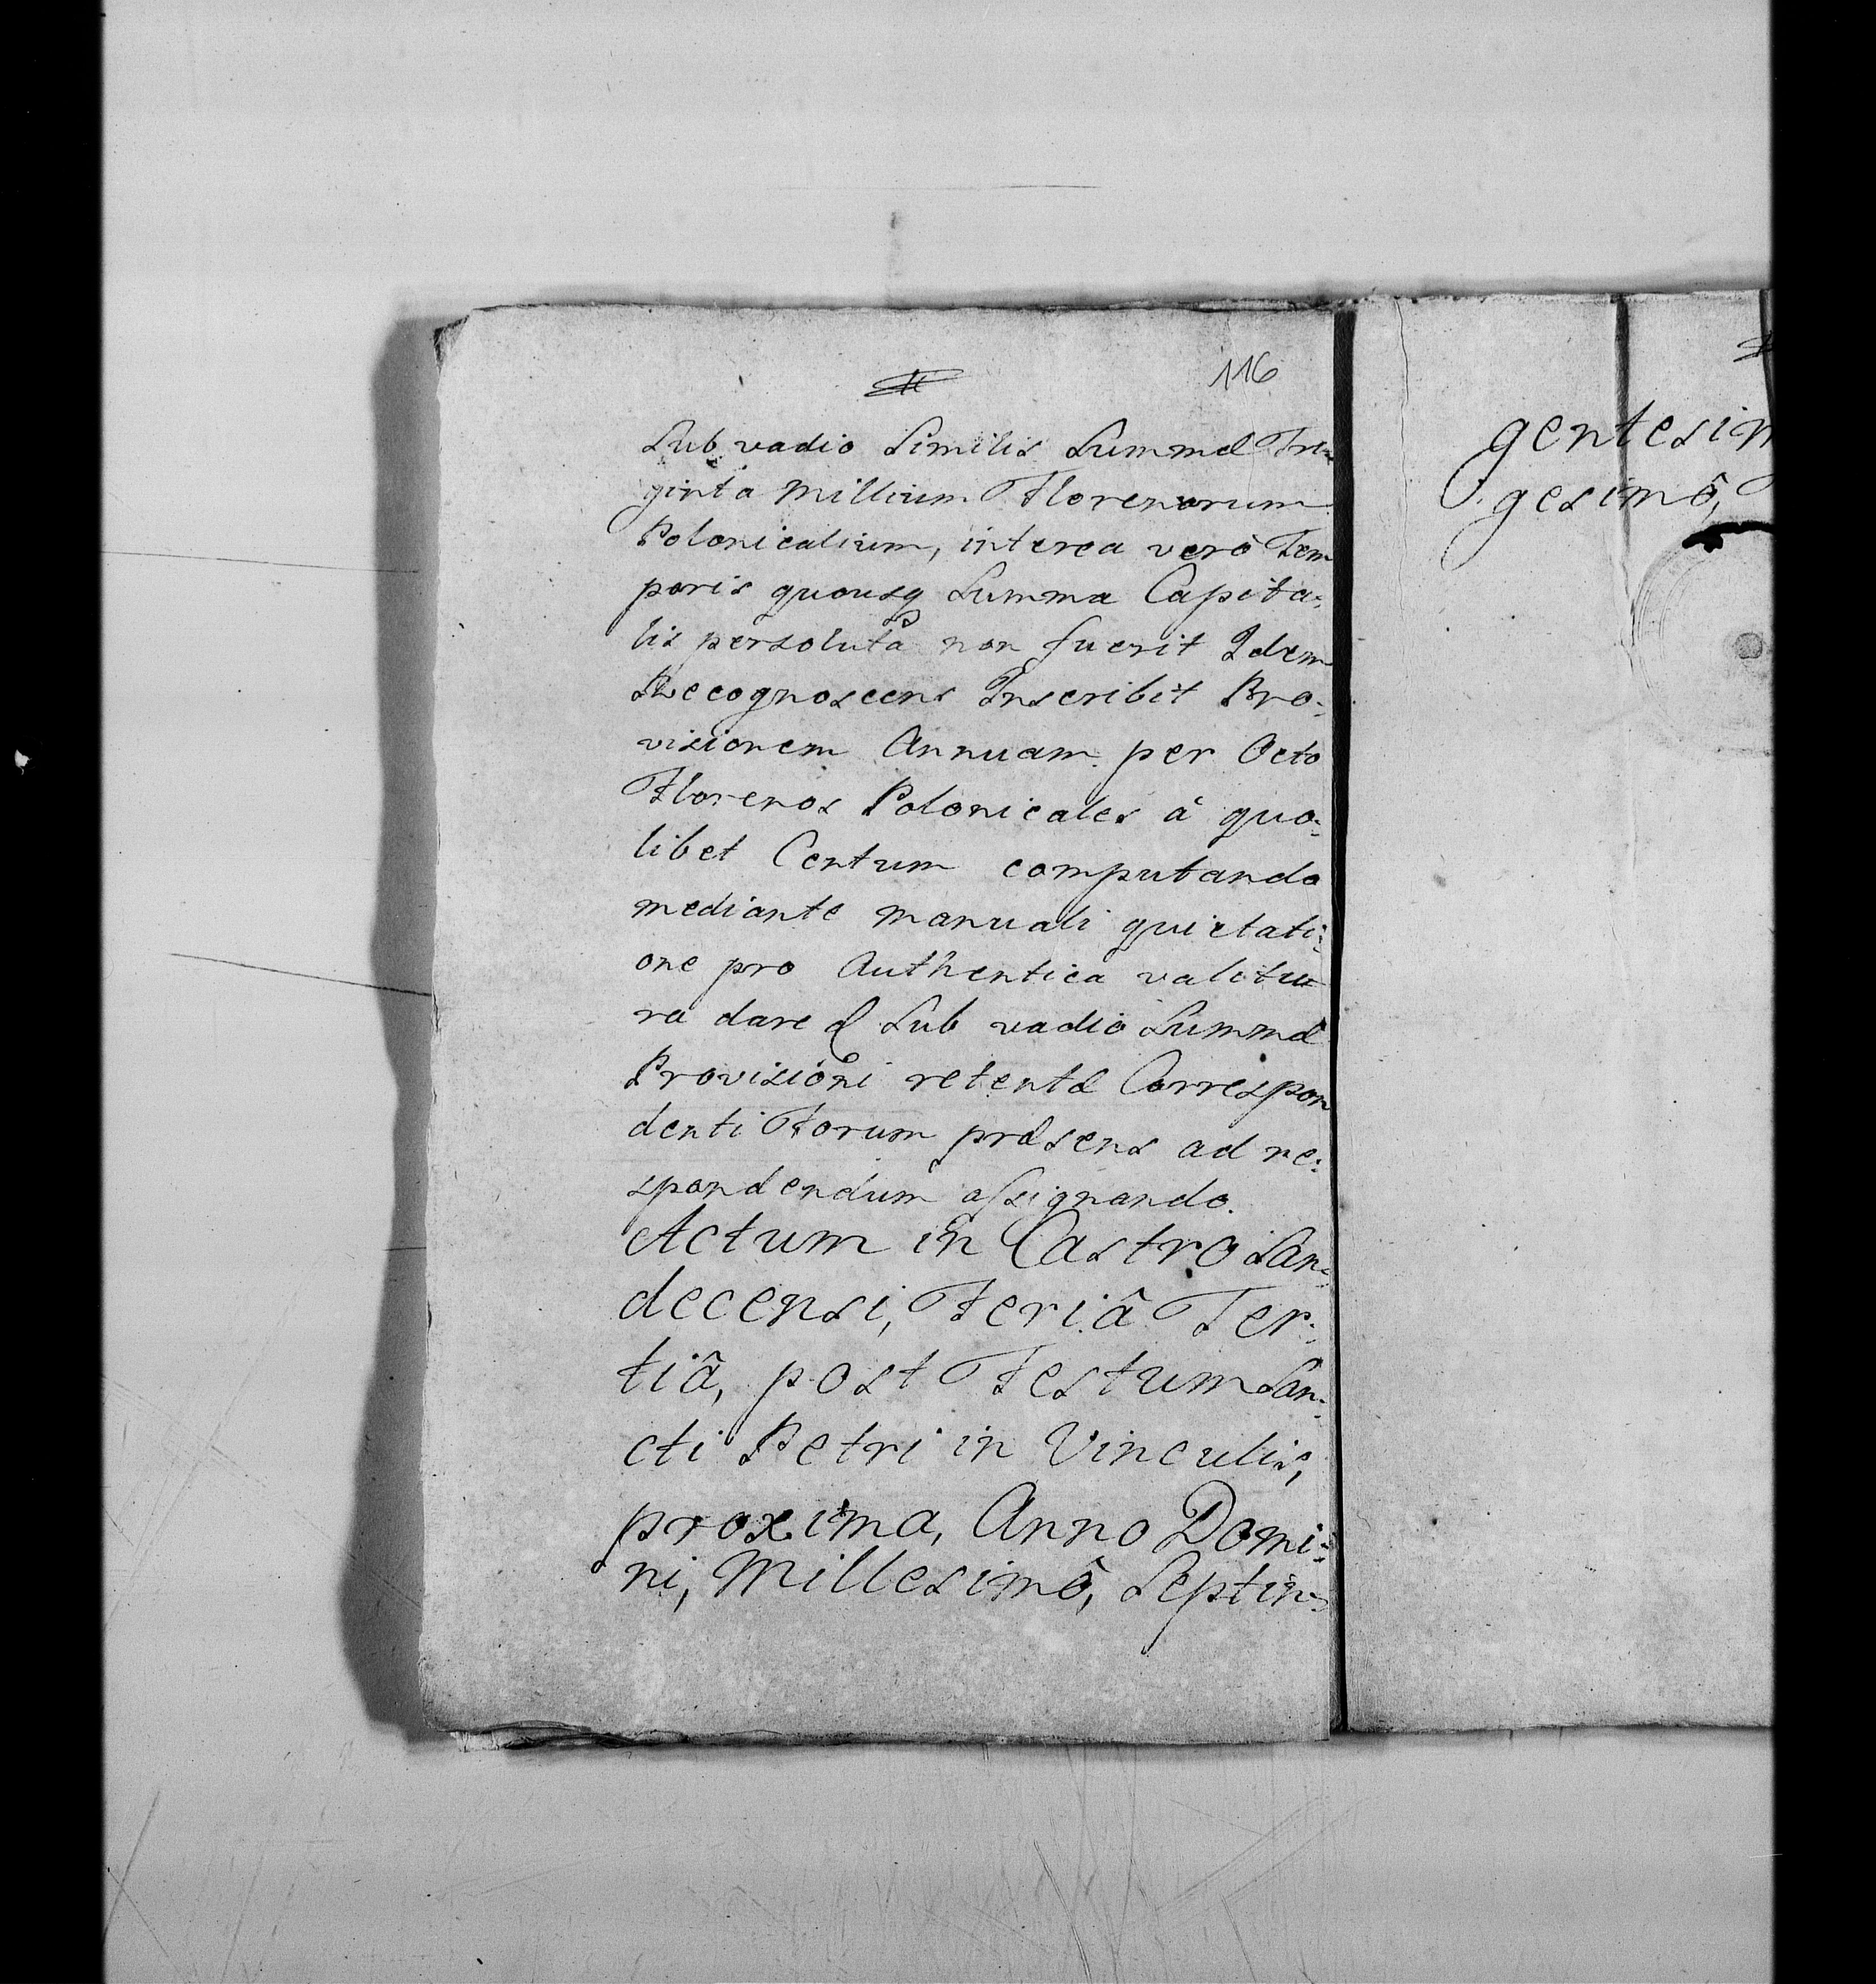 116
Sub vadio Similis Summæ Tri-
ginta Millium Florenorum
Polonicalium, interea verò Tem
poris quousq Summa Capita-
lis persoluta non fuerit Idem
Recognoscens Inscribit Pro-
visionem Annuam per Octo
Florenos Polonicales à quo-
libet Centum computando
mediante manuali quietati-
one pro Authentica valitu
ra dare & Sub vadio Summæ
Provisioni retentæ Correspon
denti Forum præsens ad re-
spondendum assignando.
Actum in Castro San-
decensi, Feriâ Ter-
tiâ, post Festum San-
cti Petri in Vinculis,
proxima, Anno Domi-
ni, Millesimô, Septin-
gentesim
gesimô,